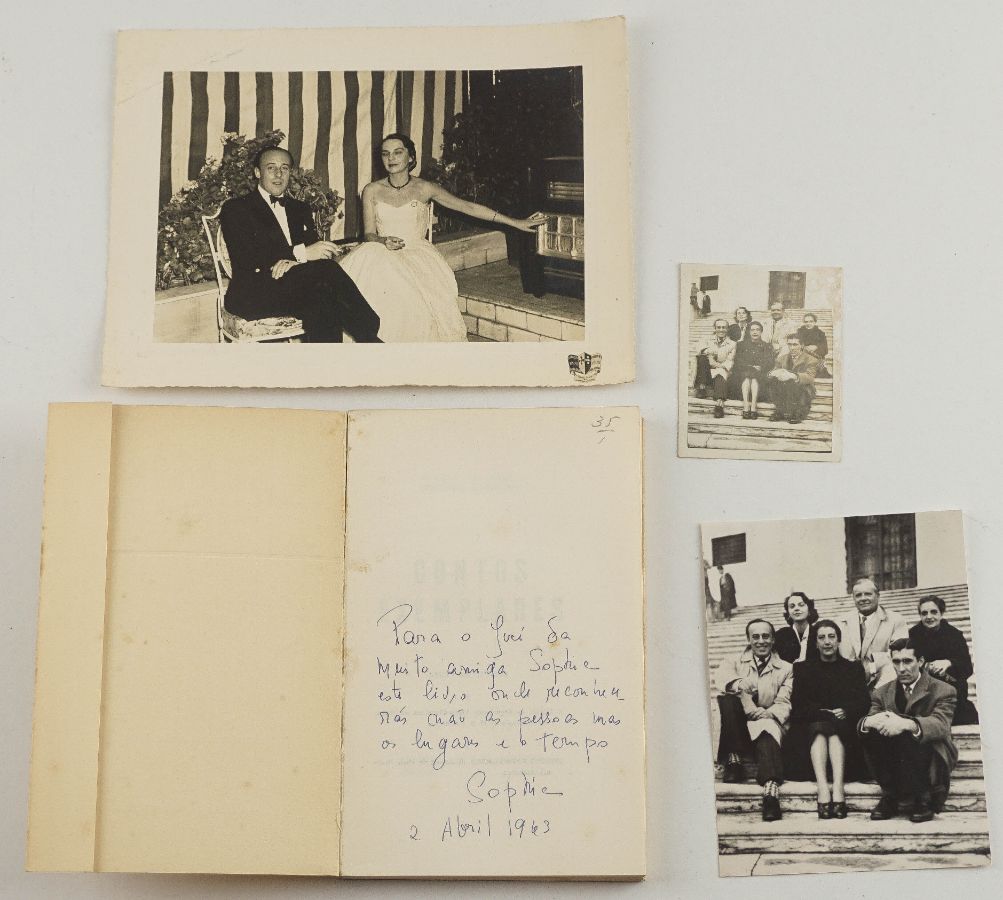 35
CONTOS
EXEMPLARES
Para o José da
muito amiga Sophia
este livro onde reconhece-
rás não as pessoas mas
os lugares e o tempo
Sophia
2 Abril 1963